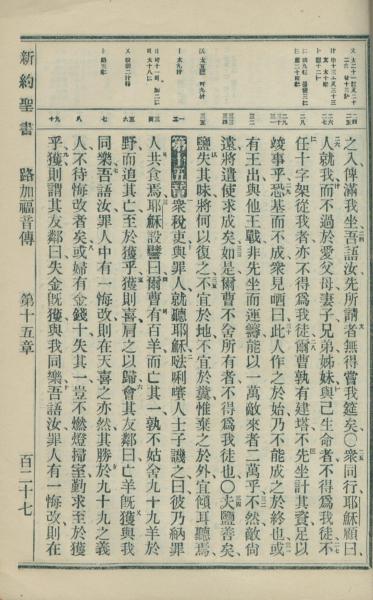 之入俾滿我坐吾語汝先所請者無得嘗我筵矣〇衆同行耶穌顧曰
人就我而不過於愛父母妻子兄弟姊妹與己生命者不得爲我徒不
任十字架從我者亦不得爲我徒爾曹孰有建塔不先坐計其資足以
竣事乎恐基而不成衆見哂曰此人作之於始乃不能成之於終也或
有王出與他王戰非先坐而運籌能以一萬敵來者二萬乎不然敵尙
遠將遣使求成矣如是爾曹不舍所有者不得爲我徒也〇夫鹽善矣
鹽失其味將何以復之不宜於地不宜於糞惟棄之於外宜傾耳聽焉
第十五章 衆稅吏與罪人就聽耶穌唎人士子譏之曰彼乃納罪
人共食焉耶穌設譬曰爾曹有百羊而亡其一孰不姑舍九十九羊於
野而追其亡至於獲乎獲則喜肩之以歸會其友鄰曰亡羊旣獲與我
同樂吾語汝罪人中有一悔改則在天喜之亦然其勝於九十九之義
人不待悔改者矣或婦有金錢十失其一豈不燃燈掃室勤求至於獲
乎獲則謂其友鄰曰失金旣獲與我同樂吾語汝罪人有一悔改則在
新約聖書 路加福音傳 第十五章 百二十七